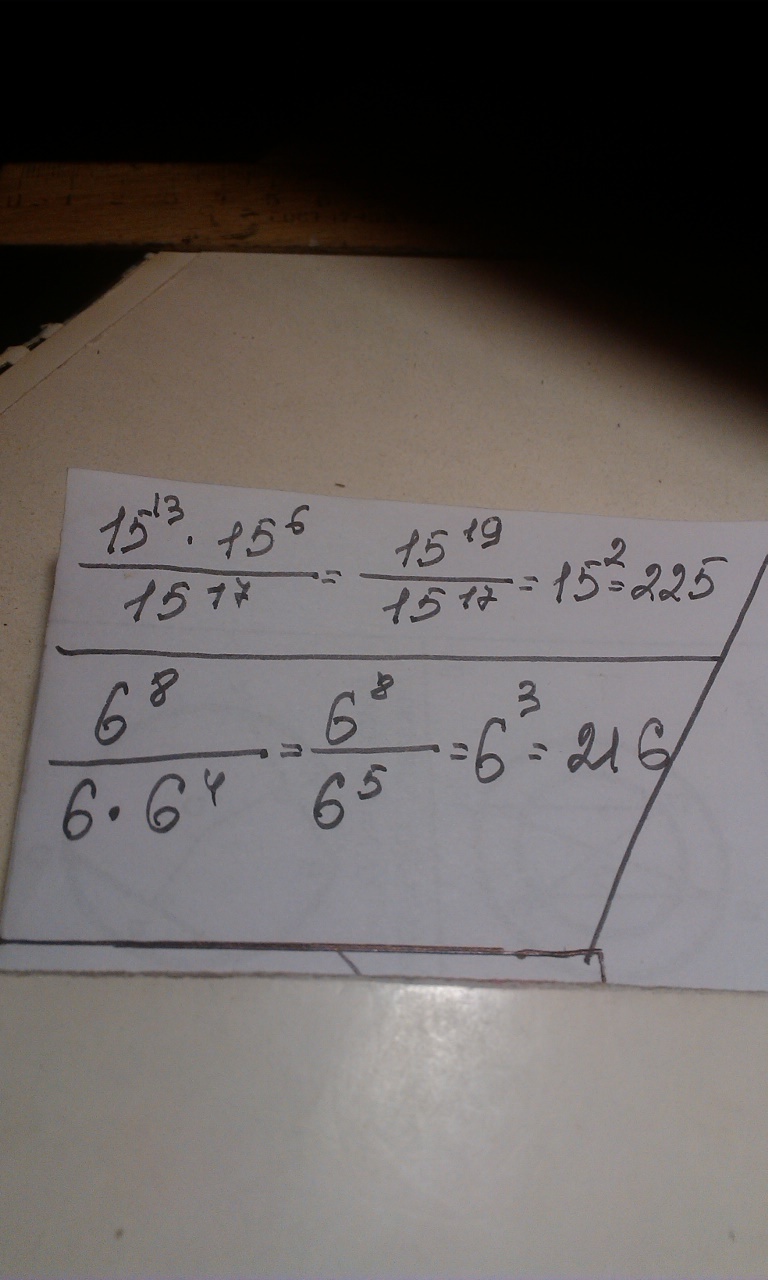 15^13 · 15^6 / 15^17 = 15^19 / 15^17 = 15^2 = 225
6^8 / 6 · 6^4 = 6^8 / 6^5 = 6^3 = 216